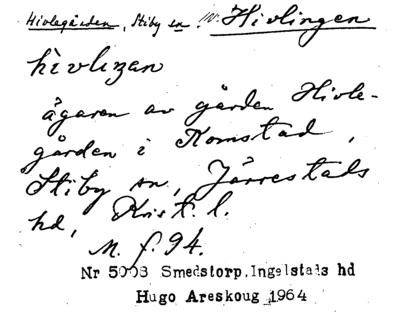 Hivlegården, Stiby sn W. Hivlingen
hìvlıŋan
ägaren av gården Hivle-
gården i Komstad,
Stiby sn, Järrestads
hd, Krist. l.
M. f. 94.
Nr 5008 Smedstorp, Ingelstads hd
Hugo Areskoug 1964